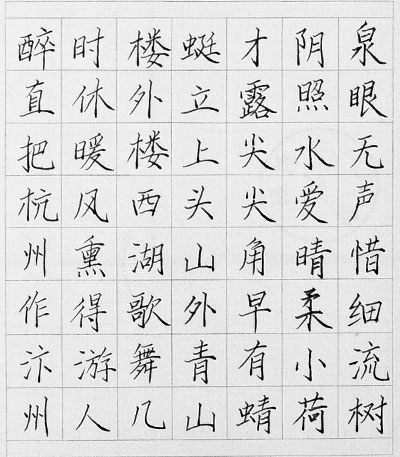 泉眼无声惜细流树
阴照水爱晴柔小荷
才露尖尖角早有蜻
蜓立上头山外青山
楼外楼西湖歌舞几
时休暖风熏得游人
醉直把杭州作汴州